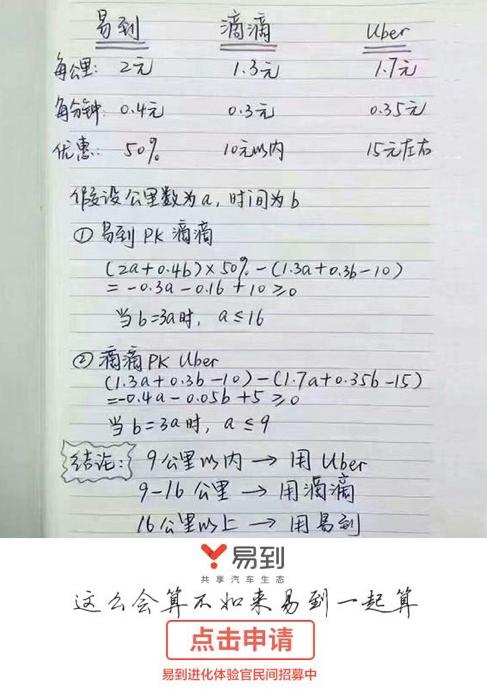 易到 滴滴 Uber
每公里: 2元 1.3元 1.7元
每分钟: 0.4元 0.3元 0.35元
优惠: 50% 10元以内 15元左右
假设公里数为a,时间为b
① 易到 PK 滴滴
(2a+0.4b)×50%-(1.3a+0.3b-10)
=-0.3a-0.1b+10≥0
当b=3a时, a≤16
② 滴滴PK Uber
(1.3a+0.3b-10)-(1.7a+0.35b-15)
=-0.4a-0.05b+5≥0
当b=3a时, a≤9
结论: 9公里以内→用Uber
9-16公里→用滴滴
16公里以上→用易到
易到
共享汽车生态
这么会算不如来易到一起算
点击申请
易到进化体验官民间招募中